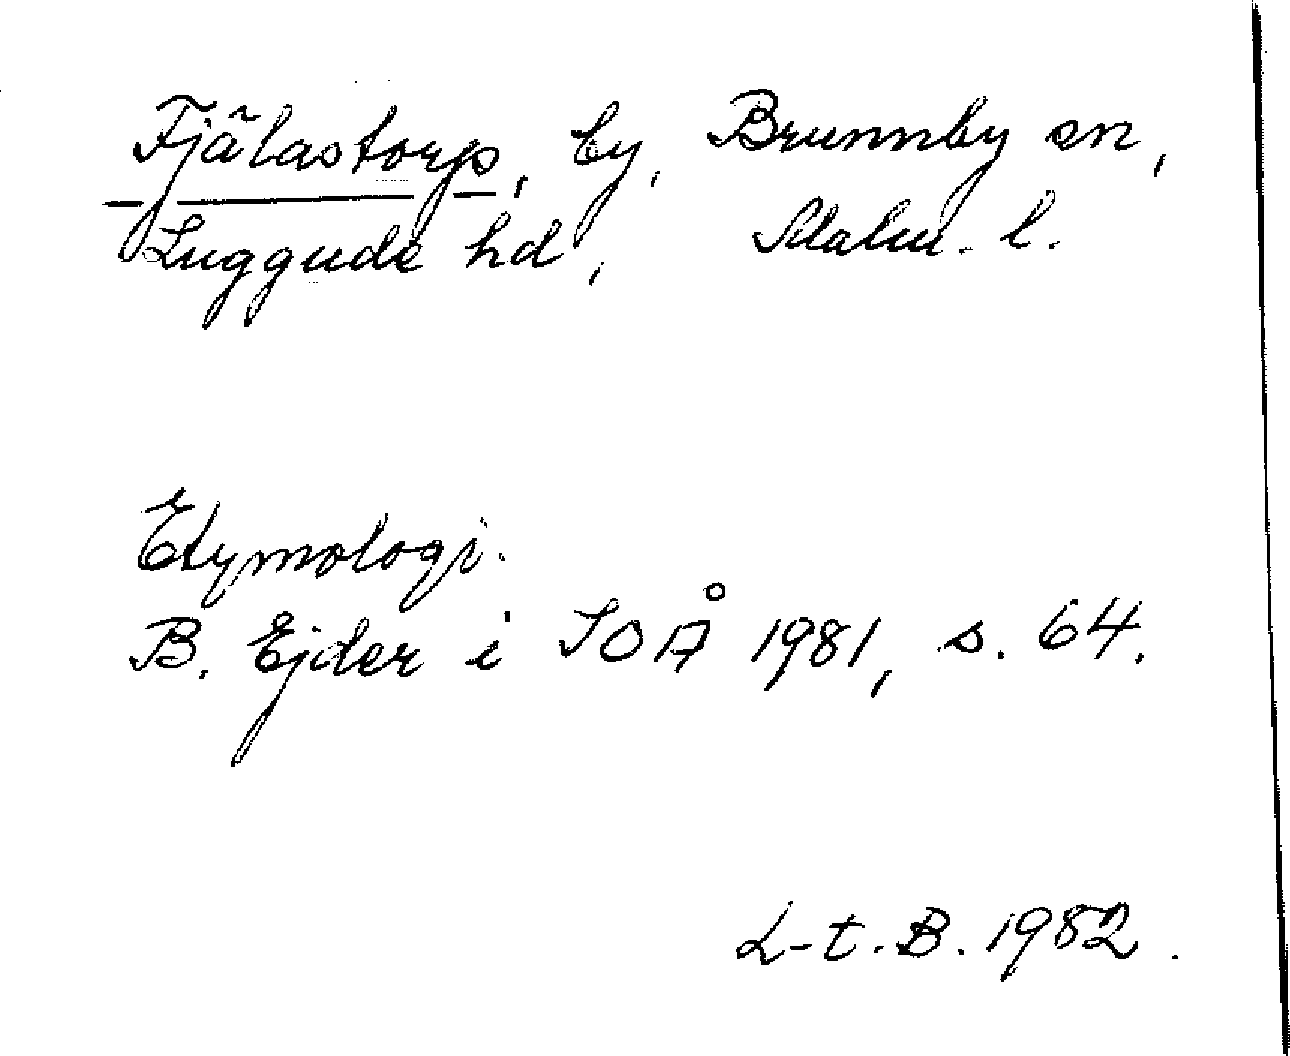 Fjälastorp, by, Brunnby sn,
Luggude hd, Malm. l.
Etymologi.
B. Ejder i SOÅ 1981, s. 64.
L-t. B. 1982.